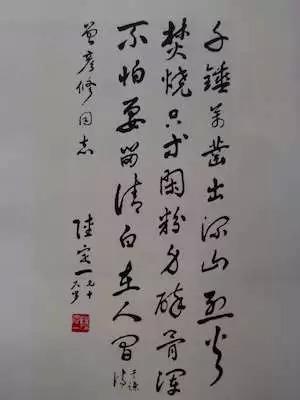 千锤萬凿出深山烈火
焚烧只等闲粉身碎骨浑
不怕要留清白在人间 于谦诗
曾彦修同志
陸定一